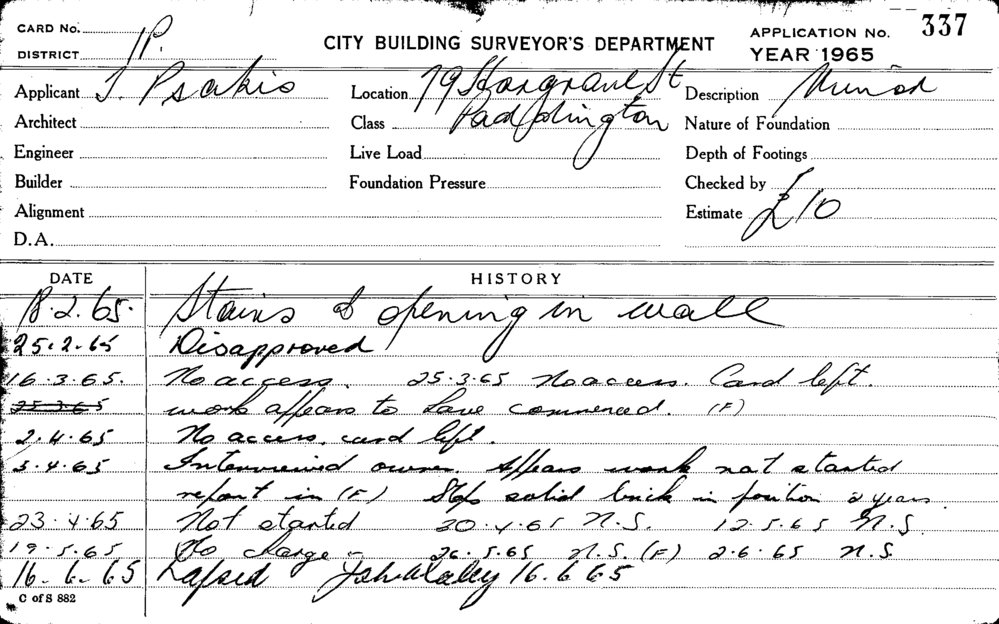 CARD No.
DISTRICT P.
CITY BUILDING SURVEYOR'S DEPARTMENT
APPLICATION No. 337
YEAR 1965
Applicant J. Psakis
Location 79 Hargrave St
Description Minor
Architect
Class Paddington
Nature of Foundation
Engineer
Live Load
Depth of Footings
Builder
Foundation Pressure
Checked by
Alignment
Estimate £10
D.A.
DATE HISTORY
18.2.65. Stairs & opening in wall
25.2.65 Disapproved
16.3.65. No access. 25.3.65 No access. Card left.
25.3.65 work appears to have commenced. (F)
2.4.65 No access, card left.
5.4.65 Interviewed owner. Appears work not started
report in (F) solid brick in position 2 years
23.4.65 Not started 30.4.65 N.S. 12.5.65 N.S.
19.5.65 No change - 26.5.65 N.S. (F) 2.6.65 N.S
16.6.65 Lapsed 16.6.65
C of S 882